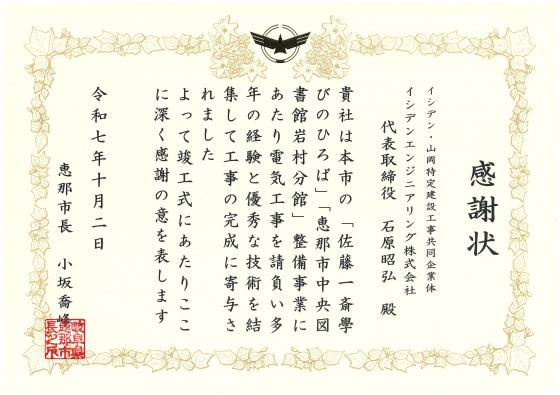 感謝状
イシデン・山岡特定建設工事共同企業体
イシデンエンジニアリング株式会社
代表取締役　石原昭弘　殿
貴社は本市の「佐藤一斎學
びのひろば」「恵那市中央図
書館岩村分館」整備事業に
あたり電気工事を請負い多
年の経験と優秀な技術を結
集して工事の完成に寄与さ
れました
よって竣工式にあたりここ
に深く感謝の意を表します
令和七年十月二日
恵那市長　小坂喬峰
岐阜県
恵那市
長之印